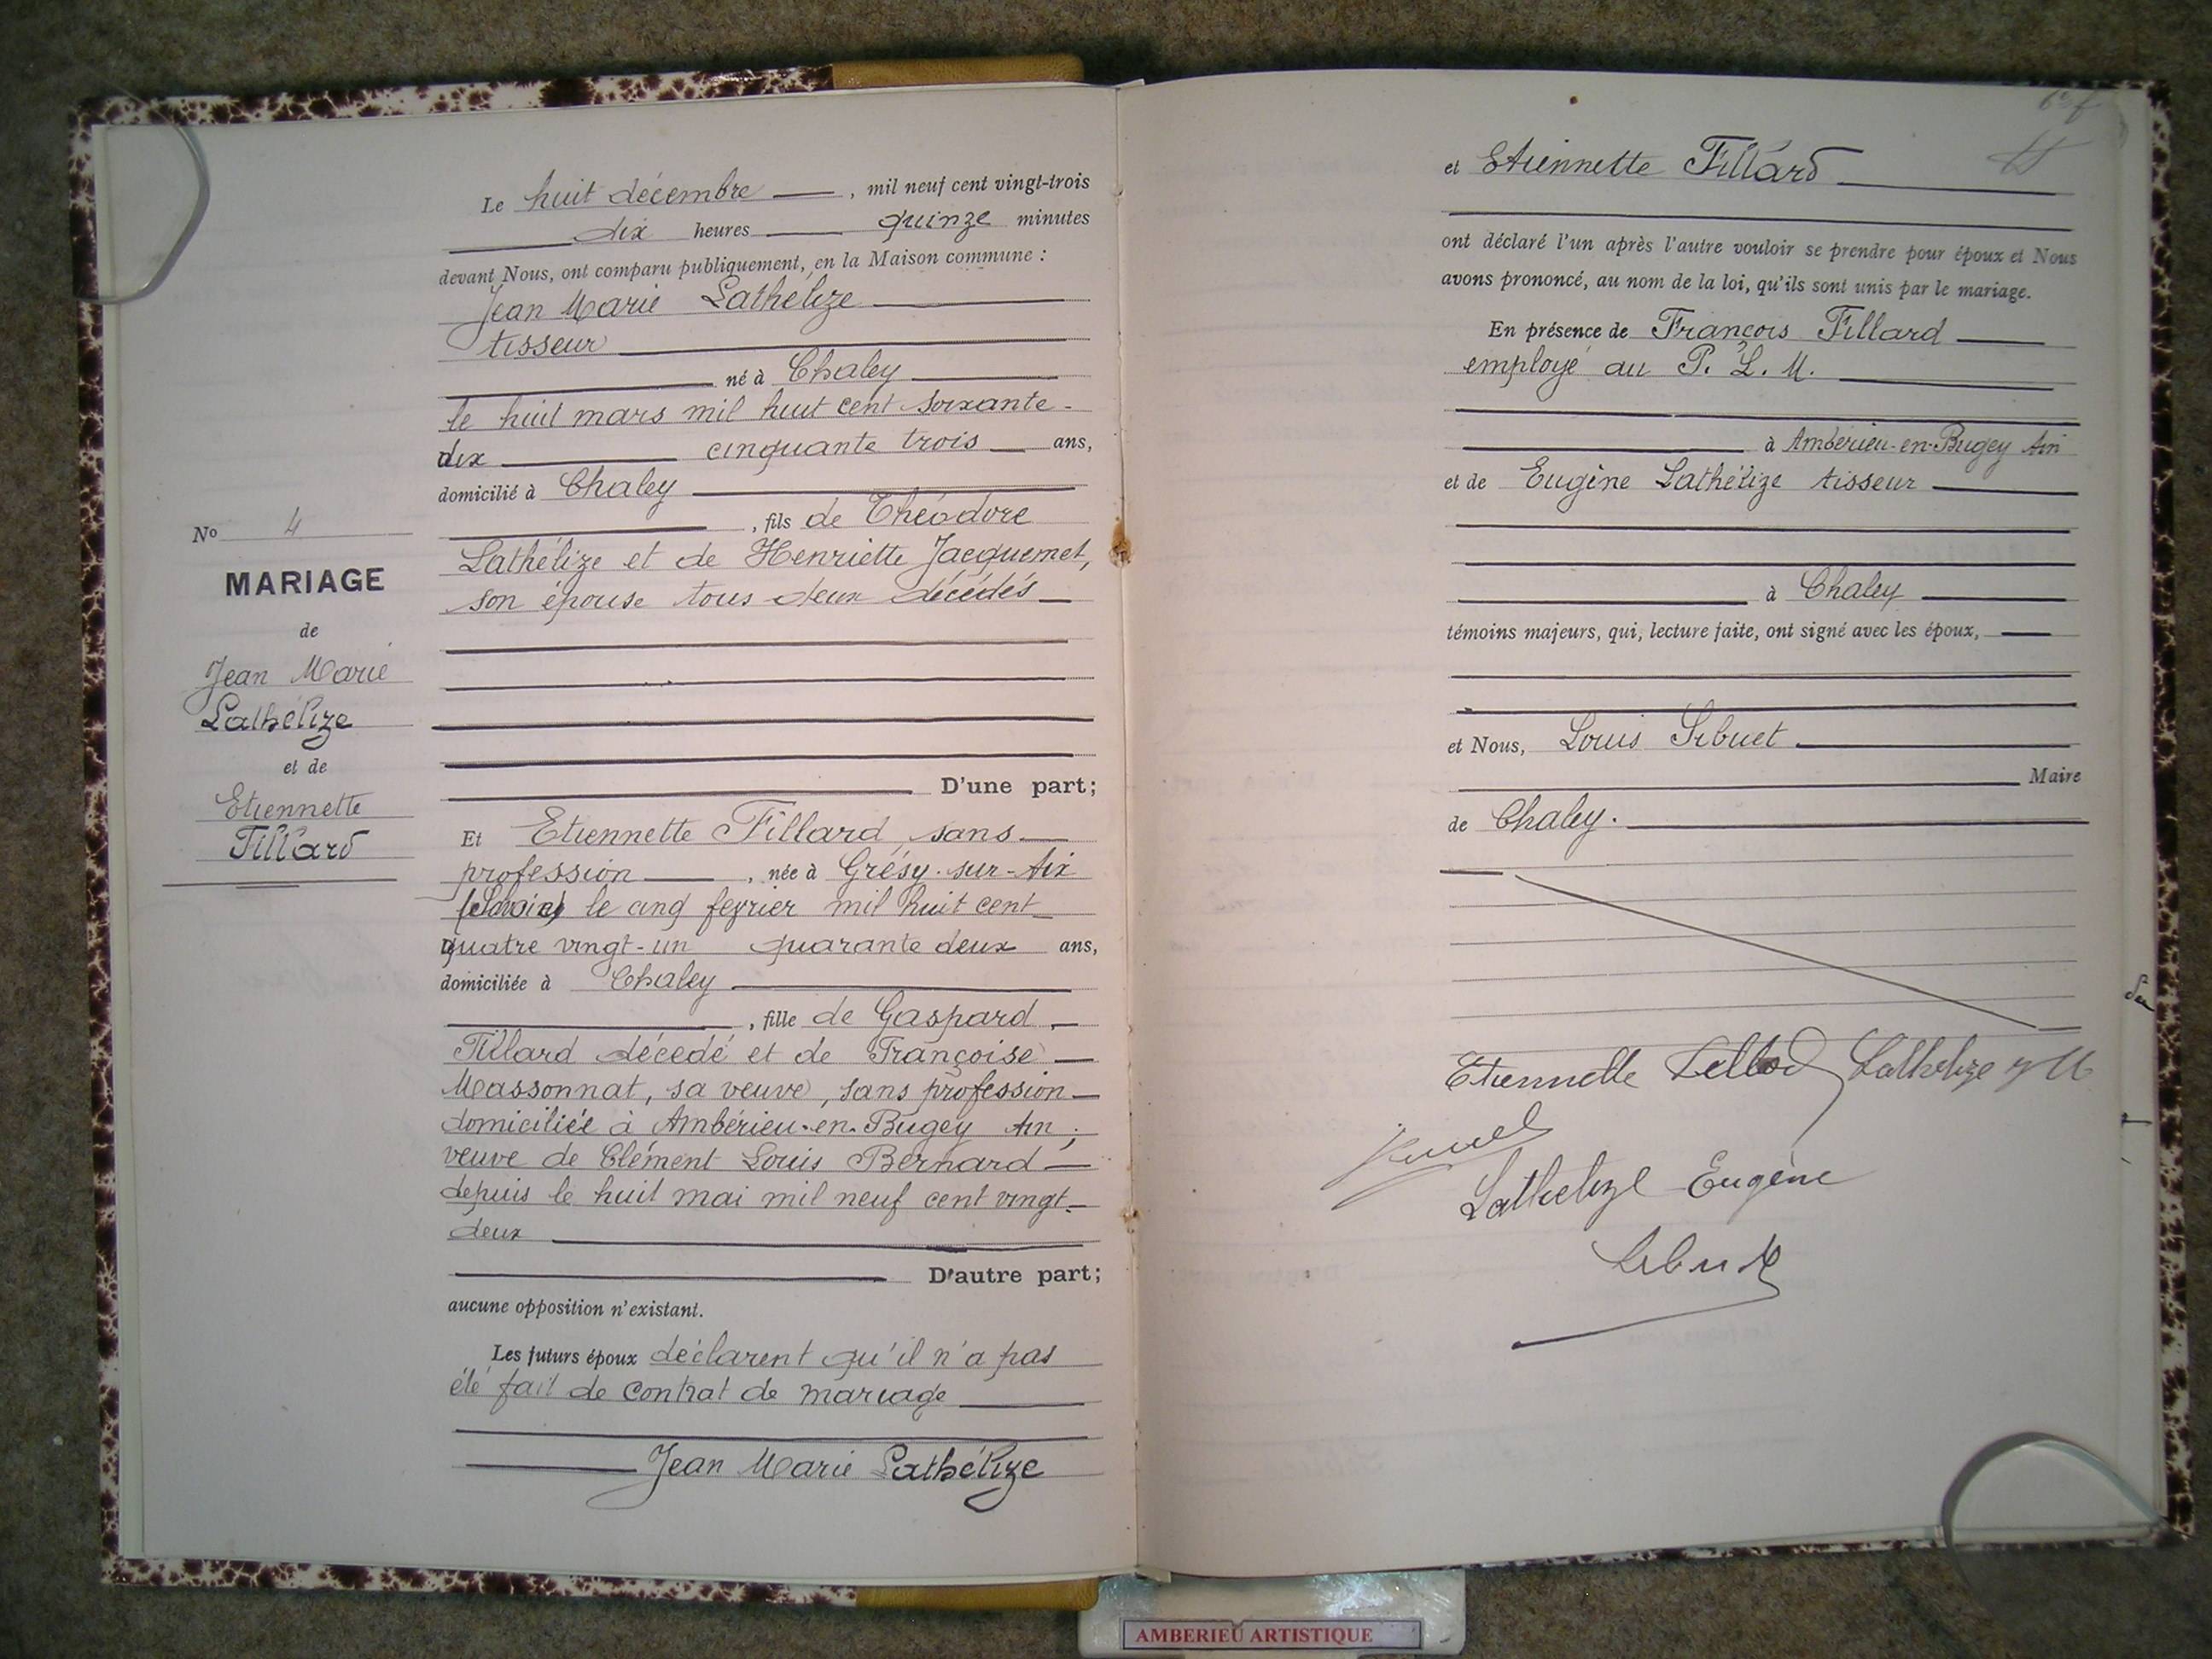 Le huit décembre, mil neuf cent vingt-trois
dix heures quinze minutes
devant Nous, ont comparu publiquement, en la Maison commune :
Jean Marie Lathélize
tisseur
né à Chaley
le huit mars mil huit cent soixante-
dix cinquante trois ans,
domicilié à Chaley
, fils de Théodore
Lathélize et de Henriette Jacquemet,
son épouse tous deux décédés
D'une part;
No 4
MARIAGE
de
Jean Marie
Lathélize
et de
Etiennette
Fillard
Et Etiennette Fillard, sans
profession, née à Grésy-sur-Aix
(Savoie) le cinq fevrier mil huit cent
quatre vingt-un quarante deux ans,
domiciliée à Chaley
, fille de Gaspard
Fillard décedé et de Françoise
Massonnat, sa veuve, sans profession
domiciliée à Ambérieu-en-Bugey Ain;
veuve de Clément Louis Bernard
depuis le huit mai mil neuf cent vingt-
deux
D'autre part;
aucune opposition n'existant.
Les futurs époux déclarent qu'il n'a pas
été fait de contrat de mariage
Jean Marie Lathélize
et Etiennette Fillard
ont déclaré l'un après l'autre vouloir se prendre pour époux et Nous
avons prononcé, au nom de la loi, qu'ils sont unis par le mariage.
En présence de François Fillard
employé au P. L. M.
à Ambérieu-en-Bugey Ain
et de Eugène Lathélize tisseur
à Chaley
témoins majeurs, qui, lecture faite, ont signé avec les époux,
et Nous, Louis Sibuet
Maire
de Chaley.
Etiennette Lathelize
Lathelize Eugène
Sibuet
AMBERIEU ARTISTIQUE